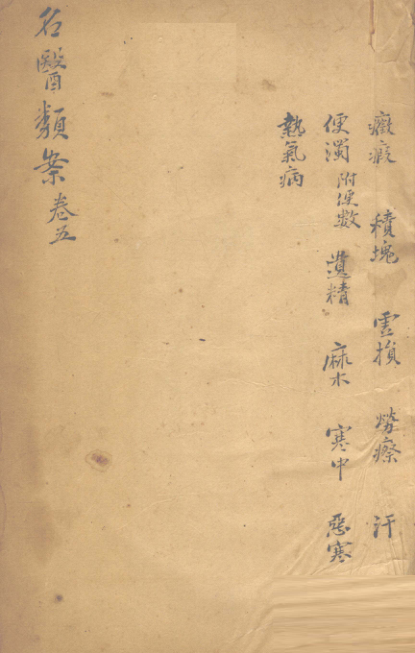 癥瘕 積塊 虛損 勞瘵 汗
便濁 附便数 遺精 麻木 寒中 惡寒
熱氣病
名醫類案卷五